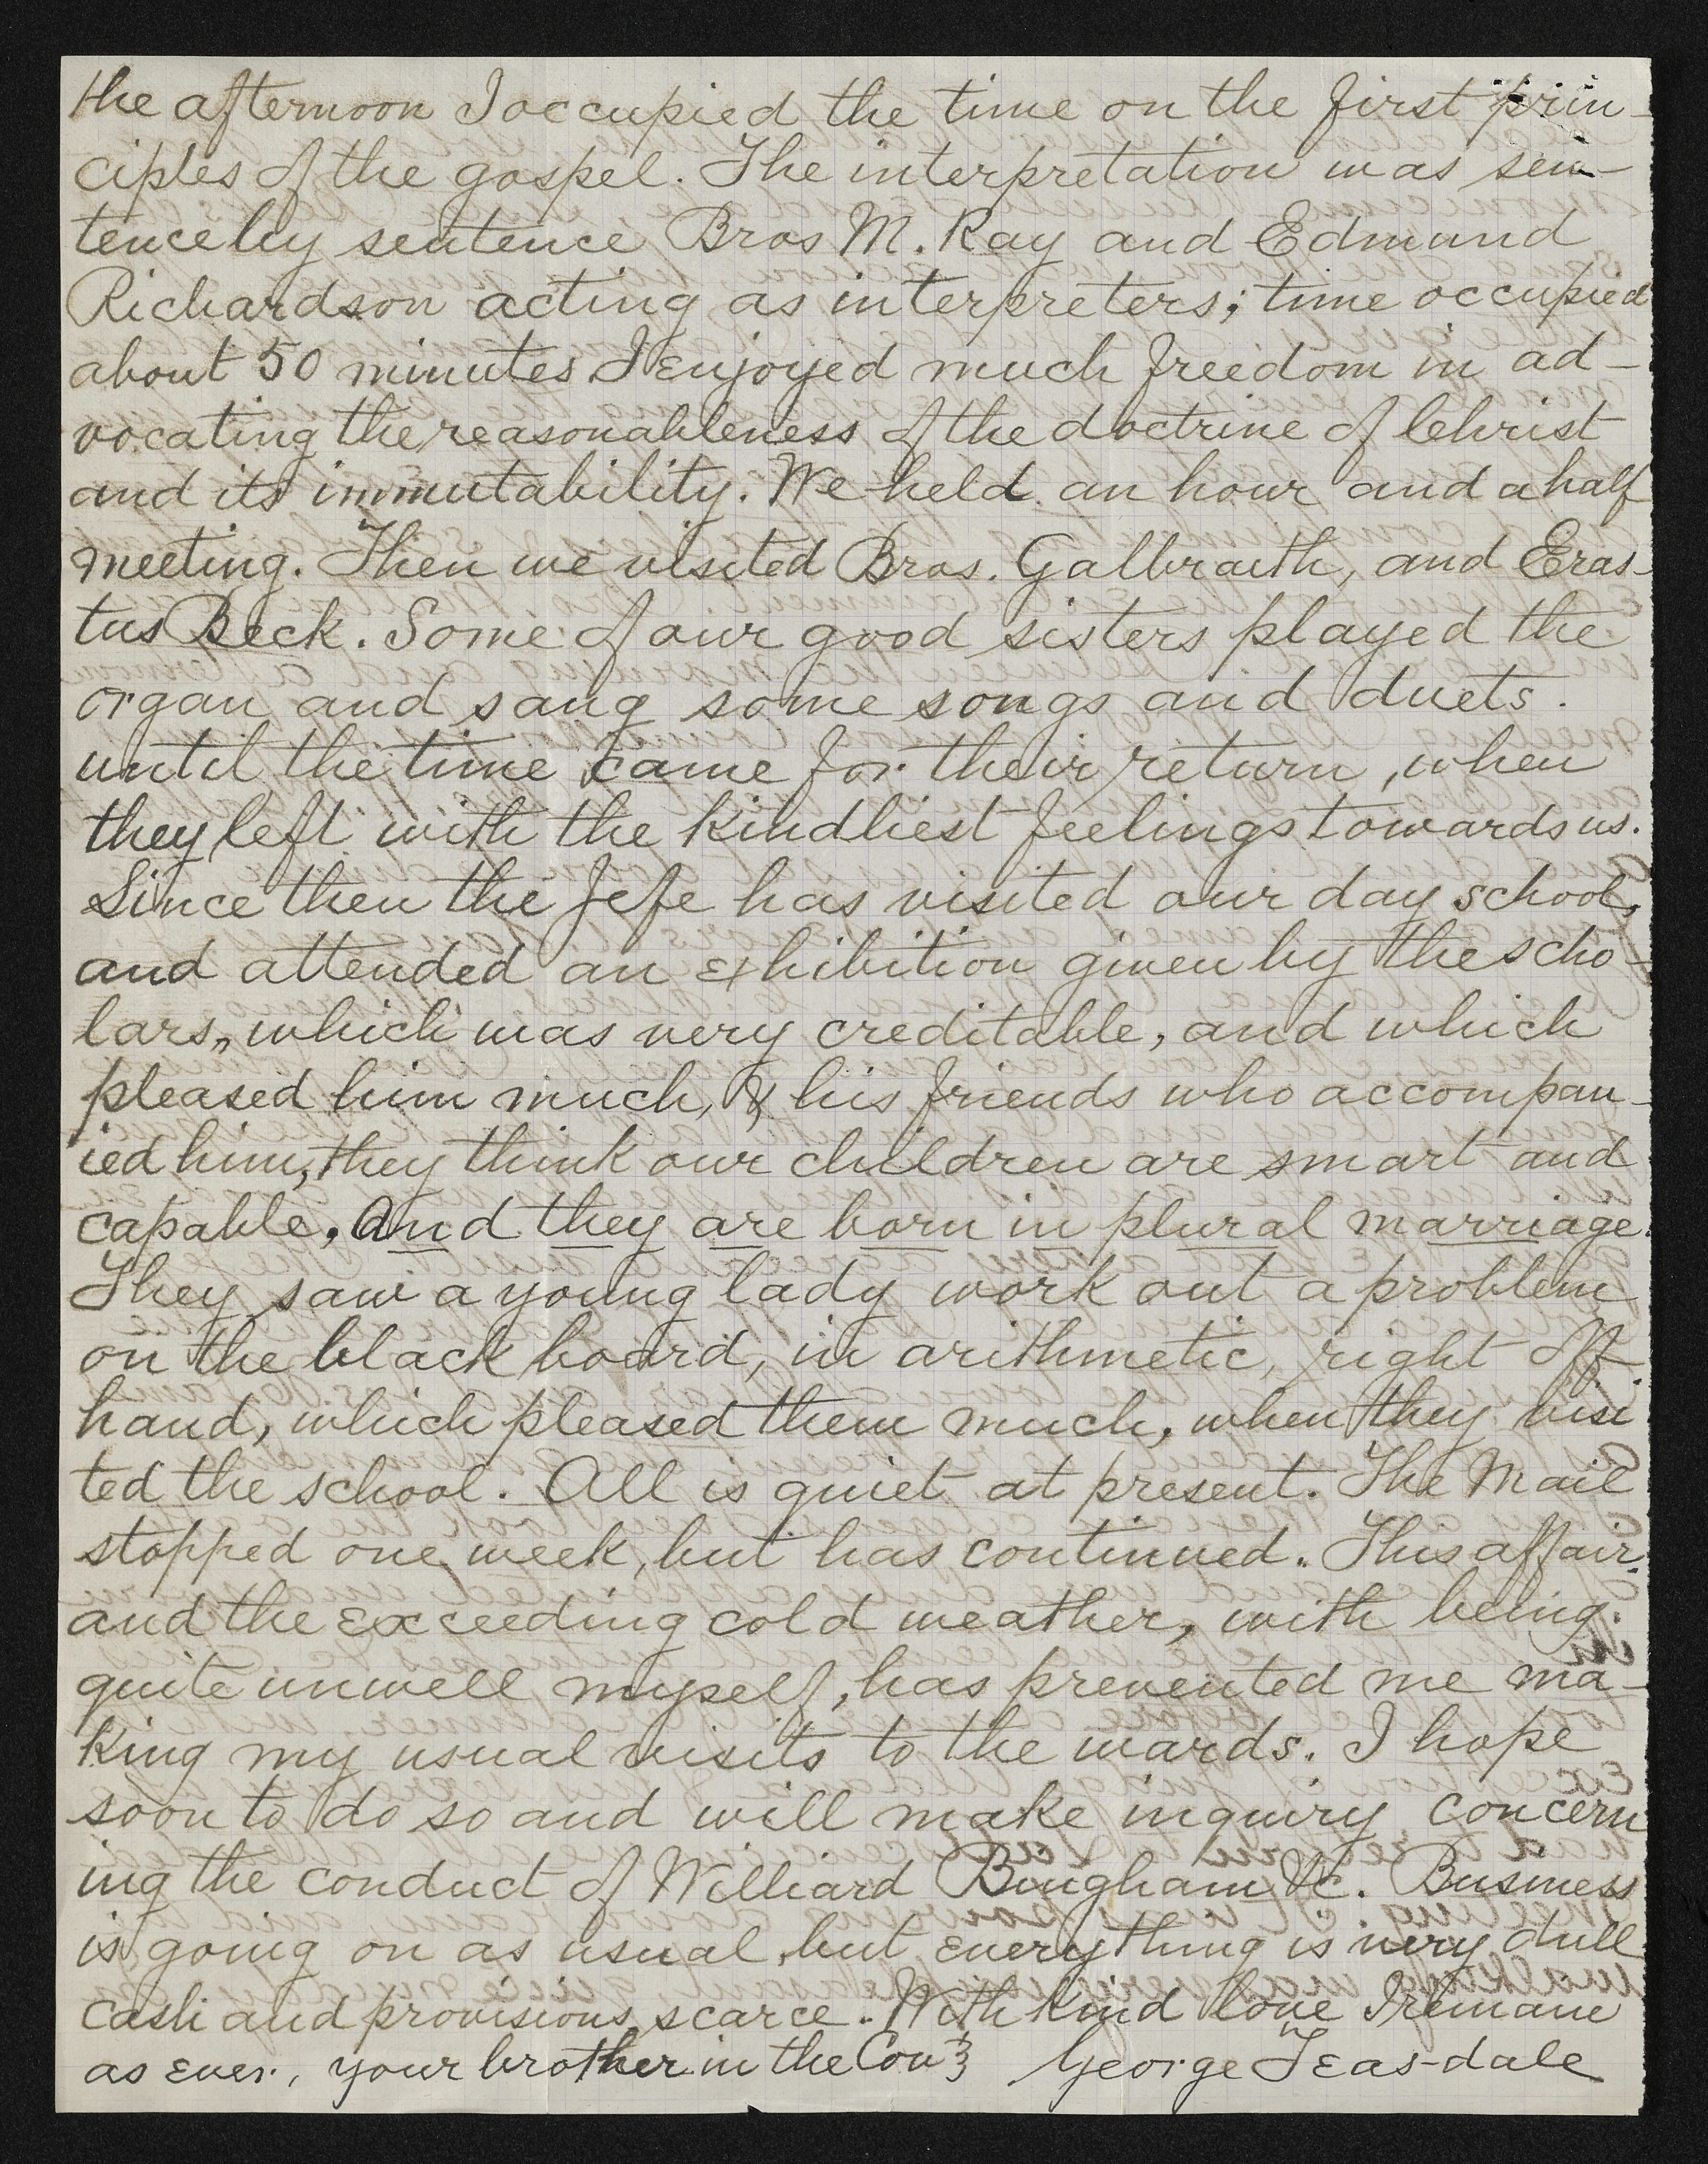 the afternoon I occupied the time on the first prin-
ciples of the gospel. The interpretation was sen-
tence by sentence Bros M. Kay and Edmund
Richardson acting as interpreters; time occupied
about 50 minutes I enjoyed much freedom in ad-
vocating the reasonableness of the doctrine of Christ
and its immutability. We held an hour and a half
meeting. Then we visited Bros. Galbraith, and Eras-
tus Beck. Some of our good sisters played the
organ and sang some songs and duets.
until the time came for their return, when
they left with the kindliest feelings towards us.
Since then the Jefe has visited our day school,
and attended an exhibition given by the scho-
lars, which was very creditable, and which
pleased him much, & his friends who accompan-
ied him, they think our children are smart and
capable. And they are born in plural marriage.
They saw a young lady work out a problem
on the black board, in arithmetic, right off
hand, which pleased them much, when they visi
ted the school. All is quiet at present. The Mail
stopped one week, but has continued. This affair
and the exceeding cold weather, with being
quite unwell myself, has prevented me ma-
king my usual visits to the wards. I hope
soon to do so and will make inquiry concern
ing the conduct of Williard Bingham &c. Business
is going on as usual, but everything is very dull
cash and provisions scarce. With kind love I remain
as ever, your brother in the Cov't George Teasdale